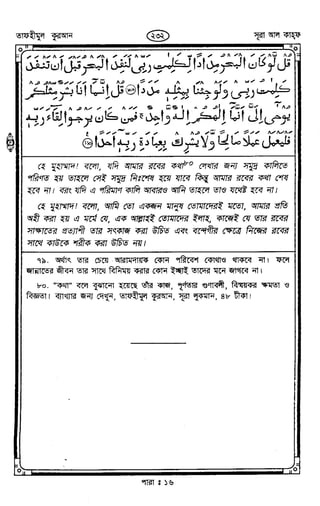 তাফহীমুল কুরআন
২০২
সূরা আল কাহফ
قُلْ لَّوْ كَانَ الْبَحْرُ مِدَادًا لِّكَلِمٰتِ رَبِّيْ لَنَفِدَ الْبَحْرُ قَبْلَ اَنْ تَنْفَدَ
كَلِمٰتُ رَبِّيْ وَلَوْ جِئْنَا بِمِثْلِهٖ مَدَدًا ۝ قُلْ اِنَّمَآ اَنَا بَشَرٌ مِّثْلُكُمْ
يُوْحٰٓى اِلَيَّ اَنَّمَآ اِلٰهُكُمْ اِلٰهٌ وَّاحِدٌ فَمَنْ كَانَ يَرْجُوْا لِقَآءَ رَبِّهٖ
فَلْيَعْمَلْ عَمَلًا صَالِحًا وَّلَا يُشْرِكْ بِعِبَادَةِ رَبِّهٖٓ اَحَدًا ۝
হে মুহাম্মাদ! বলো, যদি আমার রবের কথা৮০ লেখার জন্য সমুদ্র কালিতে
পরিণত হয় তাহলে সেই সমুদ্র নিঃশেষ হয়ে যাবে কিন্তু আমার রবের কথা শেষ
হবে না। বরং যদি এ পরিমাণ কালি আবারও আনি তাহলে তাও যথেষ্ট হবে না।
হে মুহাম্মাদ! বলো, আমি তো একজন মানুষ তোমাদেরই মতো, আমার প্রতি
অহী করা হয় এ মর্মে যে, এক আল্লাহই তোমাদের ইলাহ, কাজেই যে তার রবের
সাক্ষাতের প্রত্যাশী তার সৎকাজ করা উচিত এবং বন্দেগীর ক্ষেত্রে নিজের রবের
সাথে কাউকে শরীক করা উচিত নয়।
৭৯. অর্থাৎ তার চেয়ে আরামদায়ক কোন পরিবেশ কোথাও থাকবে না। ফলে
জান্নাতের জীবন তার সাথে বিনিময় করার কোন ইচ্ছাই তাদের মনে জাগবে না।
৮০. "কথা" বলে বুঝানো হয়েছে তাঁর কাজ, পূর্ণতার গুণাবলী, বিস্ময়কর ক্ষমতা ও
বিজ্ঞতা। ব্যাখ্যার জন্য দেখুন, তাফহীমুল কুরআন, সূরা লুকমান, ৪৮ টীকা।
পারা : ১৬